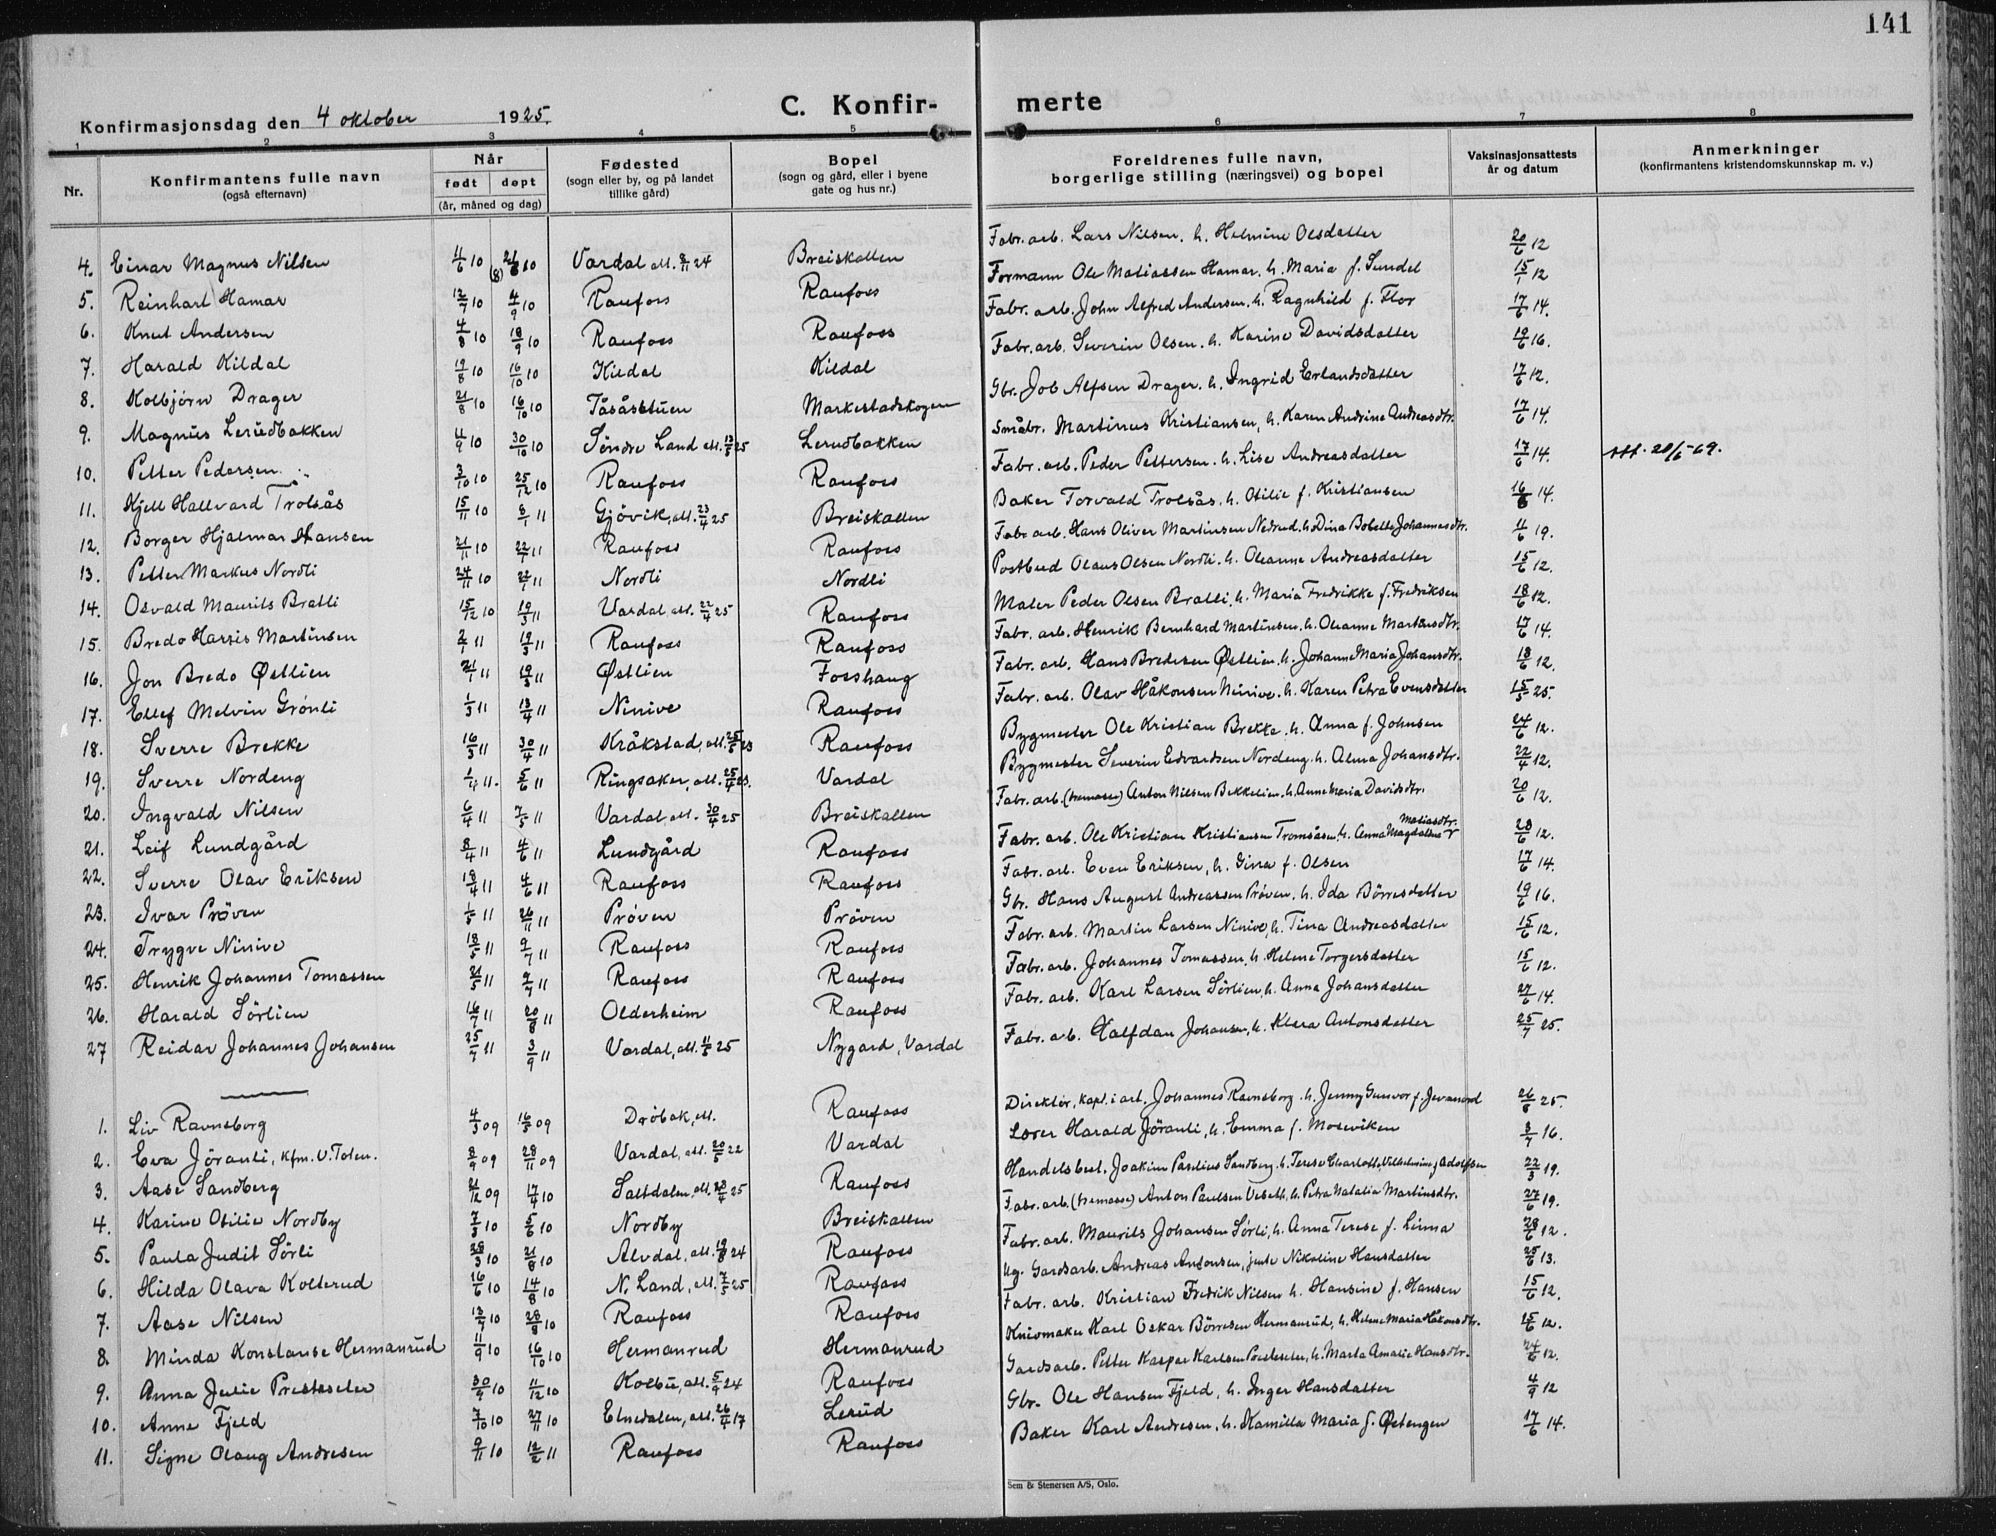 141
Konfirmasjonsdag den 4 oktober 1925.
C. Konfir- merte
1 2 3 4 5 6 7 8
Nr. | Konfirmantens fulle navn (også efternavn) | Når født | døpt (år, måned og dag) | Fødested (sogn eller by, og på landet tillike gård) | Bopel (sogn og gård, eller i byene gate og hus nr.) | Foreldrenes fulle navn, borgerlige stilling (næringsvei) og bopel | Vaksinasjonsattests år og datum | Anmerkninger (konfirmantens kristendomskunnskap m. v.)
4. Einar Magnus Nilsen 4/6 10 Vardal att. 24 Breiskallen Fabr. arb. Lars Nilsen. h. Helmine Olsdatter 20/6 12
5. Reinhart Hamar 12/7 10 4/9 10 Raufoss Raufoss Formann Ole Matiassen Hamar. h. Maria f. Sundet 15/1 12
6. Knut Andersen 4/8 10 18/9 10 Raufoss Raufoss Fabr. arb. John Alfred Andersen. h. Ragnhild f. Flor 17/6 14.
7. Harald Kildal 19/8 10 16/10 10 Kildal Kildal Fabr. arb. Severin Olsen. h. Karine Davidsdatter 19/6 16.
8. Kolbjörn Drager 21/8 10 16/10 10 Tåsåsstuen Markestadskogen Gbr. Job Alfsen Drager. h. Ingrid Erlandsdatter 17/6 12.
9. Magnus Lerudbakken 4/9 10 30/10 10 Söndre Land att. 25 Lerudbakken Småbr. Martinus Kristiansen, h. Karen Andrine Andreasdtr. 17/6 14.
10. Petter Pedersen 3/10 10 25/12 10 Raufoss Raufoss Fabr. arb. Peder Pettersen. h. Lise Andreasdatter 17/6 14. att. 20/6-69.
11. Kjell Hallvard Trolsås 15/11 10 8/1 11 Gjövik, att. 23/4 25 Breiskallen Baker Torvald Trolsås, h. Otilie f. Kristiansen 14.
12. Borger Hjalmar Hansen 21/11 10 22/1 11 Raufoss Raufoss Fabr. arb. Hans Oliver Martinsen Nedrud. h. Dina Bolette Johannesdtr. 4/6 19.
13. Petter Markus Nordli 24/11 10 22/1 11 Nordli Nordli Postbud Olaus Olsen Nordli. h. Oleanne Andreasdatter 15/6 12.
14. Osvald Maurits Bratli 15/12 10 19/3 11 Vardal, att. 22/4 25 Raufoss Maler Peder Olsen Bratli, h. Maria Fredrikke f. Fredriksen 18/6 12.
15. Bredo Harris Martinsen 2/1 11 19/3 11 Raufoss Raufoss Fabr. arb. Henrik Bernhard Martinsen. h. Oleanne Martinsdtr. 17/6 14.
16. Jon Bredo Østlien 21/1 11 19/3 11 Østlien Fosshaug Fabr. arb. Hans Bredesen Østlien. h. Johanne Maria Johansdtr. 18/6 12.
17. Ellef Melvin Grönli 1/3 11 13/4 11 Ninive Raufoss Fabr. arb. Olav Håkonsen Ninive. h. Karen Petra Evensdatter 15/5 25.
18. Sverre Brekke 16/3 11 30/4 11 Kråkstad, att. 23 Raufoss Bygmester Ole Kristian Brekke, h. Anna f. Johnsen 24/6 12.
19. Sverre Nordeng 1/4 11. 5/6 11 Ringsaker, att. 25/4 23. Vardal Bygmester Severin Edvardsen Nordeng. h. Alma Johansdtr. 22/4 12.
20. Ingvald Nilsen 6/4 11 7/5 11 Vardal, att. 30/4 25 Breiskallen Fabr. arb. (tremasse) Anton Nilsen Bekkelien. h. Anne Maria Davidsdtr. 20/6 12.
21. Leif Lundgård 8/4 11 4/6 11 Lundgård Raufoss Fabr. arb. Ole Kristian Kristiansen Tromsåsen, h. Anna Magdalena Matiasdtr. 28/6 12.
22. Sverre Olav Eriksen 18/4 11 4/6 11 Raufoss Raufoss Fabr. arb. Even Eriksen, h. Gina f. Olsen 17/6 14.
23. Ivar Pröven 1/5 11 26/11 11 Pröven Pröven Gbr. Hans August Andreassen Pröven. h. Ida Börresdatter 19/6 16.
24. Trygve Ninive 18/5 11 9/7 11 Raufoss Raufoss Fabr. arb. Martin Larsen Ninive, h. Tina Andreasdatter 15/6 12.
25. Henrik Johannes Tomassen 21/5 11 9/7 11 Raufoss Raufoss Fabr. arb. Johannes Tomassen, h. Helene Torgersdatter 15/6 12.
26. Harald Sörlien 16/7 11 20/8 11 Olderheim Raufoss Fabr. arb. Karl Larsen Sörlien, h. Anna Johansdatter 27/6 14.
27 Reidar Johannes Johansen 25/7 11 3/9 11 Vardal, att. 11/5 25 Nygard, Vardal Fabr. arb. Halfdan Johansen, h. Klara Antonsdatter 25/7 25.
1. Liv Ravnsborg 4/3 09 16/5 09 Dröbak, att. Raufoss Direktör, kapt. i art. Johannes Ravnsborg. h. Jenny Gunvor f. 26/8 25.
2. Eva Jöranli, kfm. V. Toten. 8/9 09 28/11 09 Vardal, att. 20/5 22 Vardal Lærer Harald Jöranli, h. Emma f. Moseviken 3/7 16.
3. Aase Sandberg 21/12 09 17/4 10 Saltdalen, att. 25 Raufoss Handelsbest. Joakim Paulius Sandberg. h. Terese Charlotte Vilhelmine f. Adolfsen 22/3 19.
4. Karine Otilie Nordby 7/3 10 5/6 10 Nordby Breiskallen Fabr. arb. (tremasse) Anton Paulsen Veseth. h. Petra Natalia Martinsdtr. 27/6 19.
5. Paula Judit Sörli 28/3 10 21/8 10 Alvdal, att. 19/8 24 Raufoss Fabr. arb. Maurits Johansen Sörli, h. Anna Terese f. Linna 28/6 12.
6. Hilda Olava Kolterud 16/6 10 14/8 10 N. Land, att. 7/5 25 Raufoss Ug. Gardsarb. Andreas Antonsen, jente Nikoline Hansdatter 25/6 13.
7. Aase Nilsen 13/7 10 28/8 10 Raufoss Raufoss Fabr. arb. Kristian Fredrik Nilsen h. Hansine f. Hansen 15/6 12.
8. Minda Konstanse Hermanrud 11/9 10 16/10 10 Hermanrud Hermanrud Knivmaker Karl Oskar Börresen Hermanrud, h. Helene Maria Håkonsdtr. 15/6 12.
9. Anna Julie Presteseter 30/9 10 11/12 10 Kolbu, att. 5/9 24 Raufoss Gardsarb. Petter Kaspar Karlsen Presteseter, h. Marta Amalie Hansdtr. 24/6 12.
10. Anne Fjeld 7/10 10 27/11 10 Etnedalen, att. 26/4 17 Lerud Gbr. Ole Hansen Fjeld, h. Inger Hansdatter 4/9 12
11. Signe Olaug Andresen 9/11 10 12/2 11 Raufoss Raufoss Baker Karl Andresen, h. Kamilla Maria f. Østengen 17/6 14.
Sem & Stenersen A/S, Oslo.